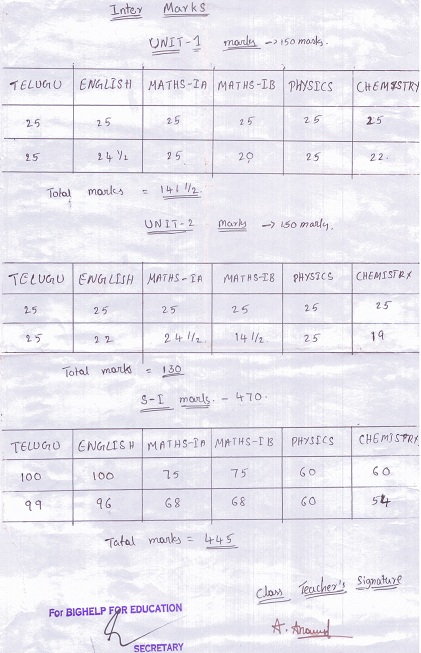 Inter Marks
UNIT-1 marks → 150 marks.
TELUGU ENGLISH MATHS-IA MATHS-IB PHYSICS CHEMISTRY
25 25 25 25 25 25
25 24 1/2 25 20 25 22.
Total marks = 141 1/2.
UNIT-2 Marks → 150 marks.
TELUGU ENGLISH MATHS-IA MATHS-IB PHYSICS CHEMISTRY
25 25 25 25 25 25
25 22 24 1/2 14 1/2 25 19
Total marks = 130
S-I marks. - 470.
TELUGU ENGLISH MATHS-IA MATHS-IB PHYSICS CHEMISTRY
100 100 75 75 60 60
99 96 68 68 60 54
Total marks = 445
Class Teacher's Signature
A. Anand
For BIGHELP FOR EDUCATION
SECRETARY